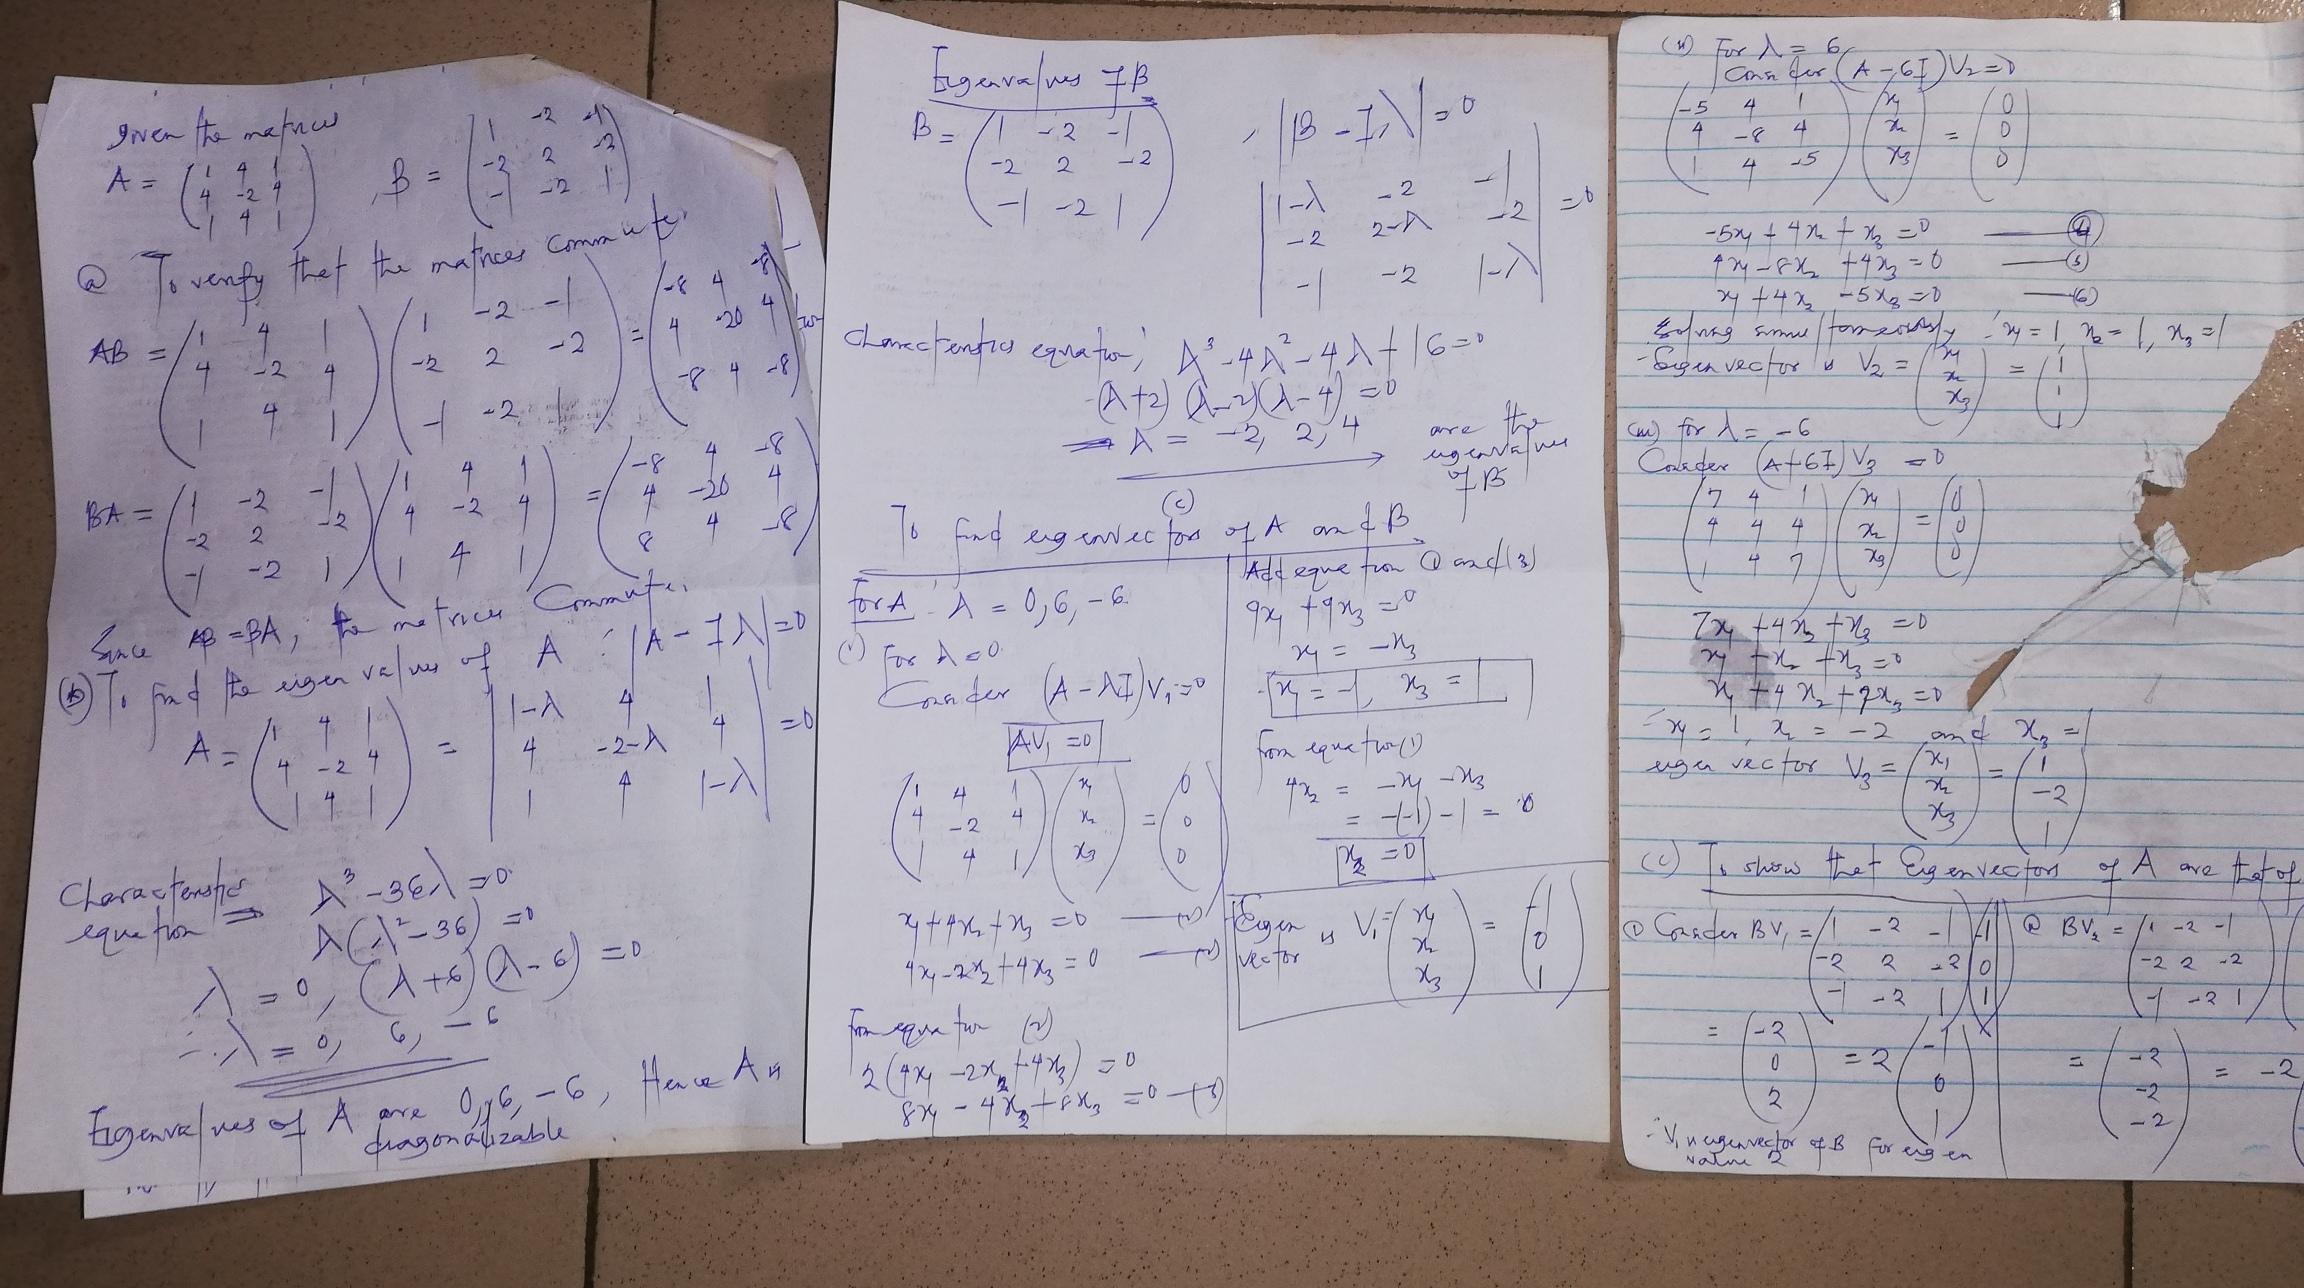 Given the matrices
A = (1 4 1
4 -2 4
1 4 1) , B = (1 -2 -1
-2 2 -2
-1 -2 1)
(a) To verify that the matrices commute,
AB = (1 4 1
4 -2 4
1 4 1) (1 -2 -1
-2 2 -2
-1 -2 1) = (-8 4 -8
4 -20 4
-8 4 -8)
BA = (1 -2 -1
-2 2 -2
-1 -2 1) (1 4 1
4 -2 4
1 4 1) = (-8 4 -8
4 -20 4
8 4 -8)
Since AB = BA, the matrices Commute.
(b) To find the eigen values of A : |A - Iλ| = 0
A = (1 4 1
4 -2 4
1 4 1) = |1-λ 4 1
4 -2-λ 4
1 4 1-λ| = 0
Characteristics equation ⇒ λ³ - 36λ = 0
λ(λ² - 36) = 0
λ = 0, (λ+6)(λ-6) = 0
∴ λ = 0, 6, -6
Eigenvalues of A are 0, 6, -6, Hence A is
diagonalizable
Eigenvalues of B
B = (1 -2 -1
-2 2 -2
-1 -2 1) , |B - Iλ| = 0
|1-λ -2 -1
-2 2-λ -2
-1 -2 1-λ| = 0
Characteristics equation, λ³ - 4λ² - 4λ + 16 = 0
(λ+2)(λ-2)(λ-4) = 0
⇒ λ = -2, 2, 4 are the
eigenvalues
of B
(c)
To find eigenvectors of A and B
For A λ = 0, 6, -6
(i) For λ = 0
Consider (A - λI)V₁ = 0
AV₁ = 0
(1 4 1
4 -2 4
1 4 1) (x₁
x₂
x₃) = (0
0
0)
x₁ + 4x₂ + x₃ = 0 —(1)
4x₁ - 2x₂ + 4x₃ = 0 —(2)
From equation (2)
2(4x₁ - 2x₂ + 4x₃) = 0
8x₁ - 4x₂ + 8x₃ = 0 —(3)
Add equation (1) and (3)
9x₁ + 9x₃ = 0
x₁ = -x₃
x₁ = -1, x₃ = 1
From equation (1)
4x₂ = -x₁ - x₃
= -(-1) - 1 = 0
x₂ = 0
Eigen
vector is V₁ = (x₁
x₂
x₃) = (-1
0
1)
(ii) For λ = 6
Consider (A - 6I)V₂ = 0
(-5 4 1
4 -8 4
1 4 -5) (x₁
x₂
x₃) = (0
0
0)
-5x₁ + 4x₂ + x₃ = 0 —(4)
4x₁ - 8x₂ + 4x₃ = 0 —(5)
x₁ + 4x₂ - 5x₃ = 0 —(6)
Solving simultaneously ∴ x₁ = 1, x₂ = 1, x₃ = 1
∴ Eigen vector is V₂ = (x₁
x₂
x₃) = (1
1
1)
(iii) for λ = -6
Consider (A+6I)V₃ = 0
(7 4 1
4 4 4
1 4 7) (x₁
x₂
x₃) = (0
0
0)
7x₁ + 4x₂ + x₃ = 0
x₁ + x₂ + x₃ = 0
x₁ + 4x₂ + 7x₃ = 0
∴ x₁ = 1, x₂ = -2 and x₃ = 1
eigen vector V₃ = (x₁
x₂
x₃) = (1
-2
1)
(c) To show that Eigenvectors of A are that of
① Consider BV₁ = (1 -2 -1
-2 2 -2
-1 -2 1) (-1
0
1)
= (-2
0
2) = 2 (-1
0
1)
∴ V₁ is eigenvector of B for eigen
value 2
② BV₂ = (1 -2 -1
-2 2 -2
-1 -2 1)
= (-2
-2
-2) = -2